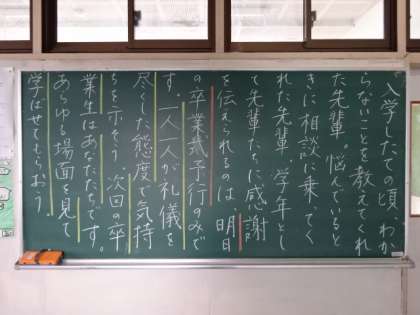 入学したての頃、わか
らないことを教えてくれ
た先輩。悩んでいると
きに相談に乗ってく
れた先輩。学年とし
て先輩たちに感謝
を伝えられるのは、明日
の卒業式予行のみで
す。一人一人が礼儀を
尽くした態度で気持
ちを示そう。次回の卒
業生はあなたたちです。
あらゆる場面を見て
学ばせてもらおう。